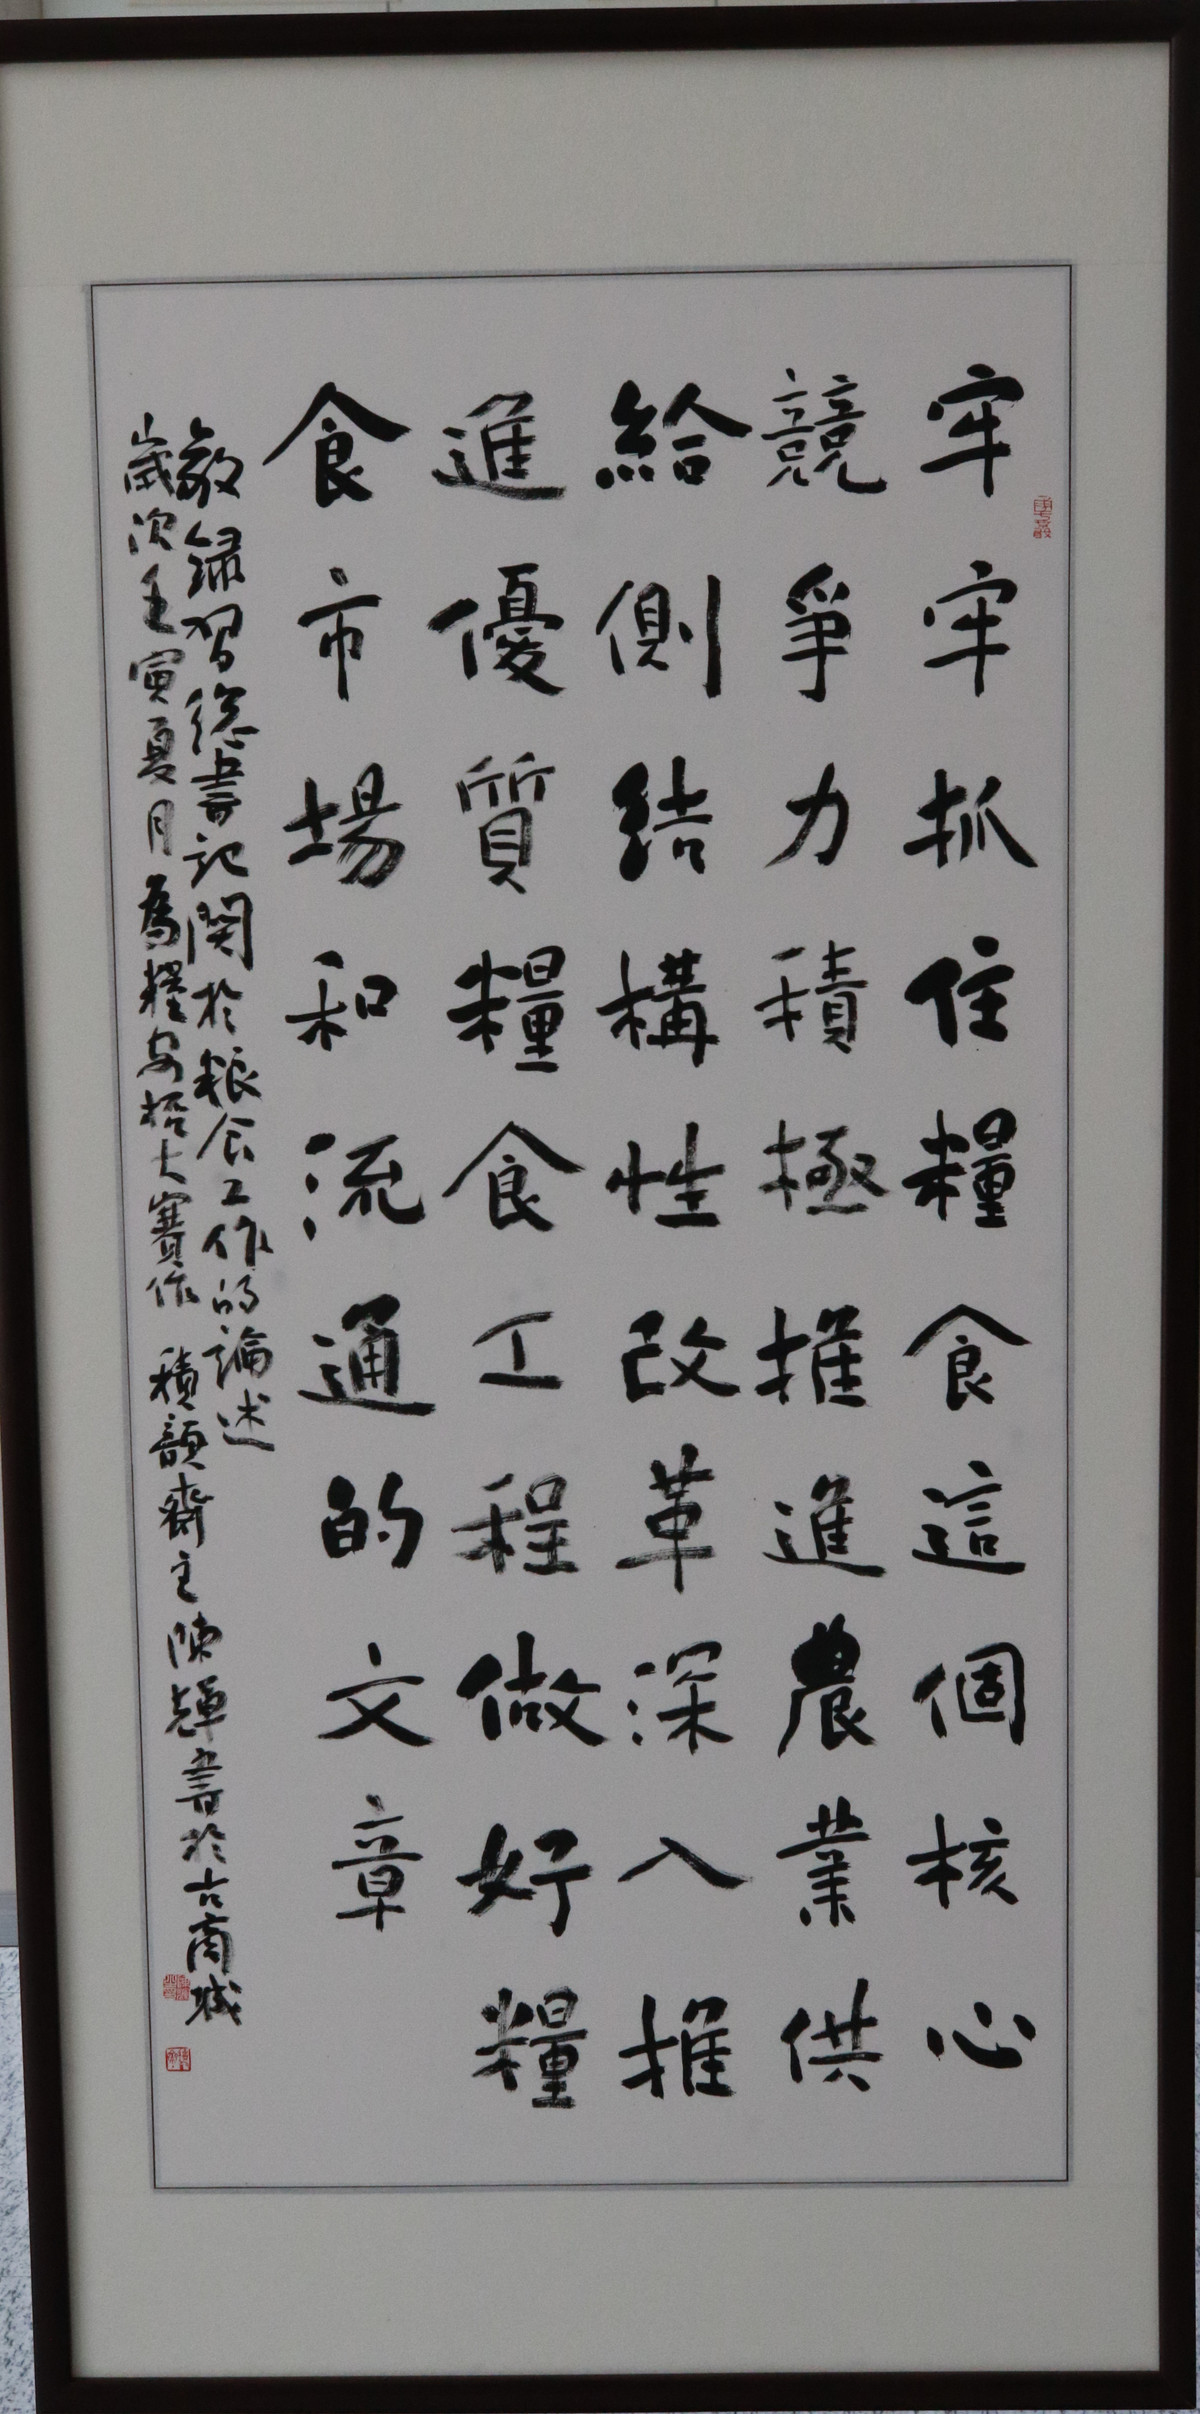 牢牢抓住糧食這個核心
競爭力積極推進農業供
給側結構性改革深入推
進優質糧食工程做好糧
食市場和流通的文章
敬録習總書記関於粮食工作的論述
歲次壬寅夏月為糧安杯大賽作 積韻齋主陳輝書於古商城